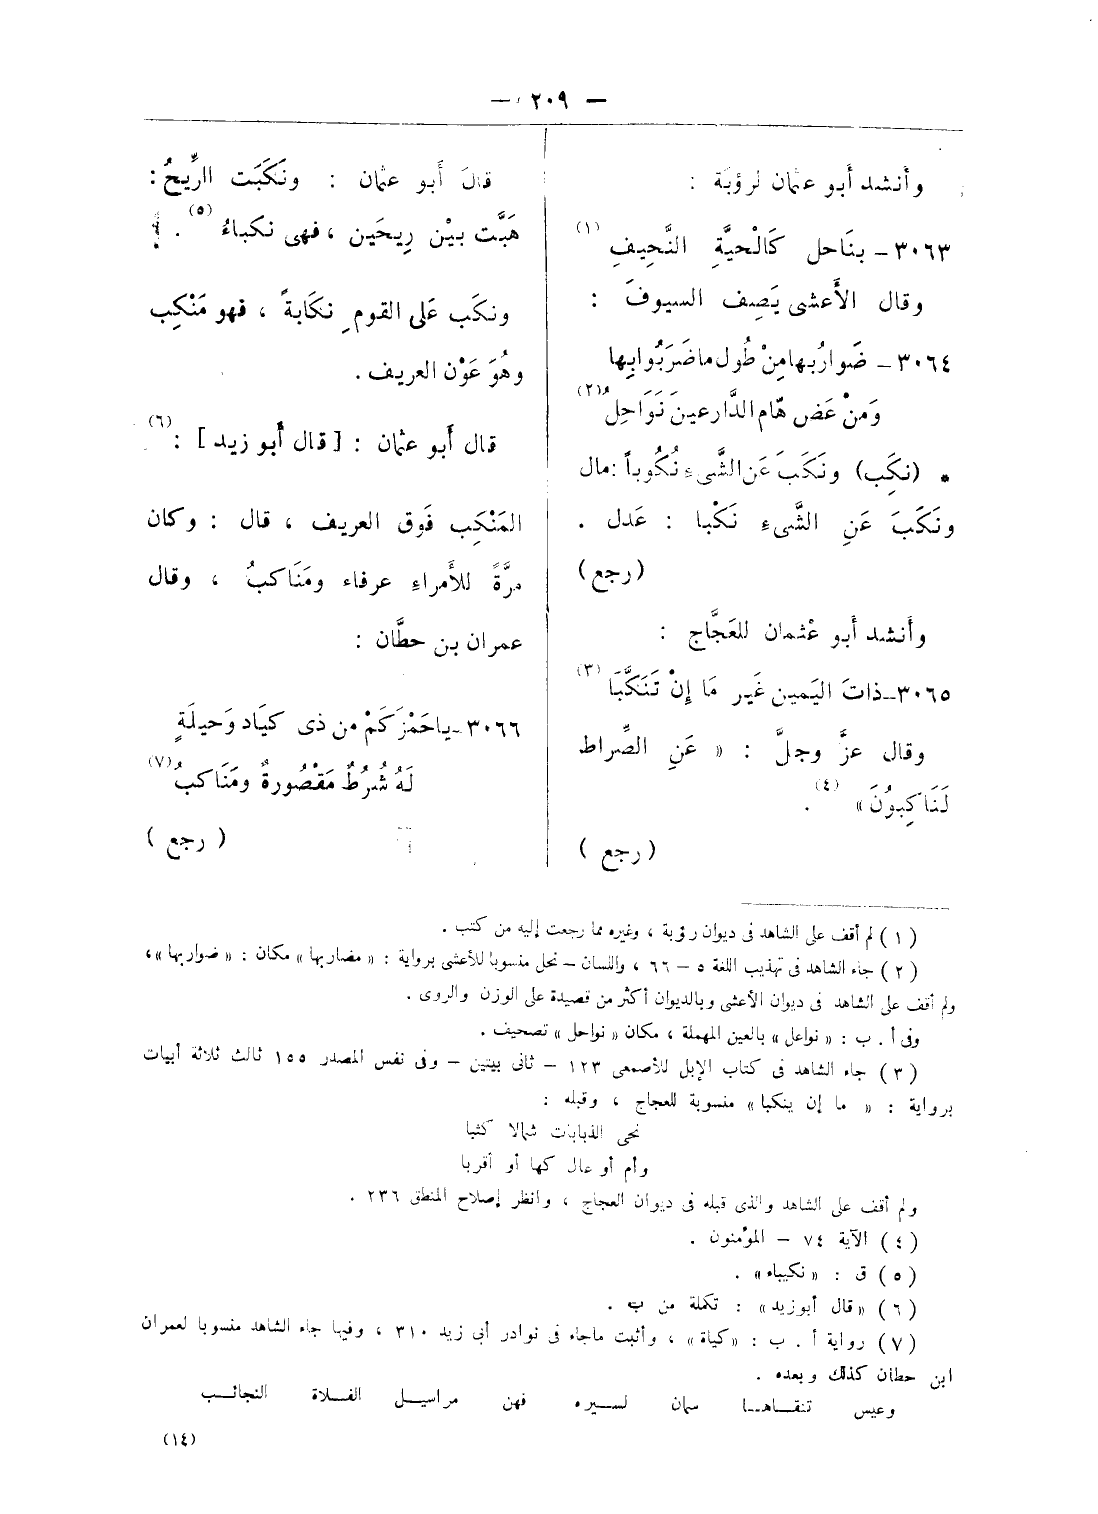 — ٢٠٩ —
وأنشد أبو عثمان لرؤبة :
٣٠٦٣ – بنَاحل كَالْحيَّةِ النَّحِيفِ (١)
وقال الأَعشى يَصِف السيوفَ :
٣٠٦٤ – ضَواربُها مِنْ طُول ما ضَرَبُوا بِها
وَمنْ عَض هَام الدَّارعينَ نَوَاحِلُ (٢)
* (نكَِب) ونَكَبَ عَن الشَّىءِ نُكُوباً : مال
ونَكَبَ عَنِ الشَّىءِ نَكْبا : عَدل .
(رجع)
وأنشد أبو عثمان للعَجَّاج :
٣٠٦٥ – ذاتَ اليَمين غَير مَا إنْ تَنَكَّبَا (٣)
وقال عزَّ وجلَّ : « عَنِ الصِّراط
لَنَاكِبوُنَ » (٤) .
( رجع )
قالَ أَبو عثمان : ونَكَبَت الرِّيحُ :
هَبَّت بيْن رِيحَين ، فهى نكباءُ (٥) .
ونكَب عَلى القومِ نكَابةً ، فهو مَنْكِب
وهُوَ عَوْن العريف .
قال أَبو عثمان : [ قال أَبو زيد ] : (٦)
المَنْكِب فَوق العريف ، قال : وكان
مرَّةً للأَمراءِ عرفاء ومَنَاكبُ ، وقال
عمران بن حطَّان :
٣٠٦٦ – ياحَمْزَ كَمْ من ذى كيَاد وَحيلَةٍ
لَهُ شُرطٌ مَقْصُورةٌ ومَنَاكبُ (٧)
( رجع )
(١) لم أقف على الشاهد فى ديوان رؤبة ، وغيره مما رجعت إليه من كتب .
(٢) جاء الشاهد فى تهذيب اللغة ٥ – ٦٦ ، واللسان – نحل منسوبا للأعشى برواية : « مضاربها » مكان : « ضواربها » ،
ولم أقف على الشاهد فى ديوان الأعشى وبالديوان أكثر من قصيدة على الوزن والروى .
وفى أ . ب : « نواعل » بالعين المهملة ، مكان « نواحل » تصحيف .
(٣) جاء الشاهد فى كتاب الإبل للأصمعى ١٢٣ – ثانى بيتين – وفى نفس المصدر ١٥٥ ثالث ثلاثة أبيات
برواية : « ما إن ينكبا » منسوبة للعجاج ، وقبله :
نحى الذبابات شمالا كثبا
وأم أو عال كها أو أقربا
ولم أقف على الشاهد والذى قبله فى ديوان العجاج ، وانظر إصلاح المنطق ٢٣٦ .
(٤) الآية ٧٤ – المؤمنون .
(٥) ق : « نكيباء » .
(٦) « قال أبوزيد » : تكملة من ب .
(٧) رواية أ . ب : « كياة » ، وأثبت ماجاء فى نوادر أبى زيد ٣١٠ ، وفيها جاء الشاهد منسوبا لعمران
ابن حطان كذلك وبعده .
وعيس تنقاهــا سمان لسيره فهن مراسيل الفلاة النجائب
(١٤)